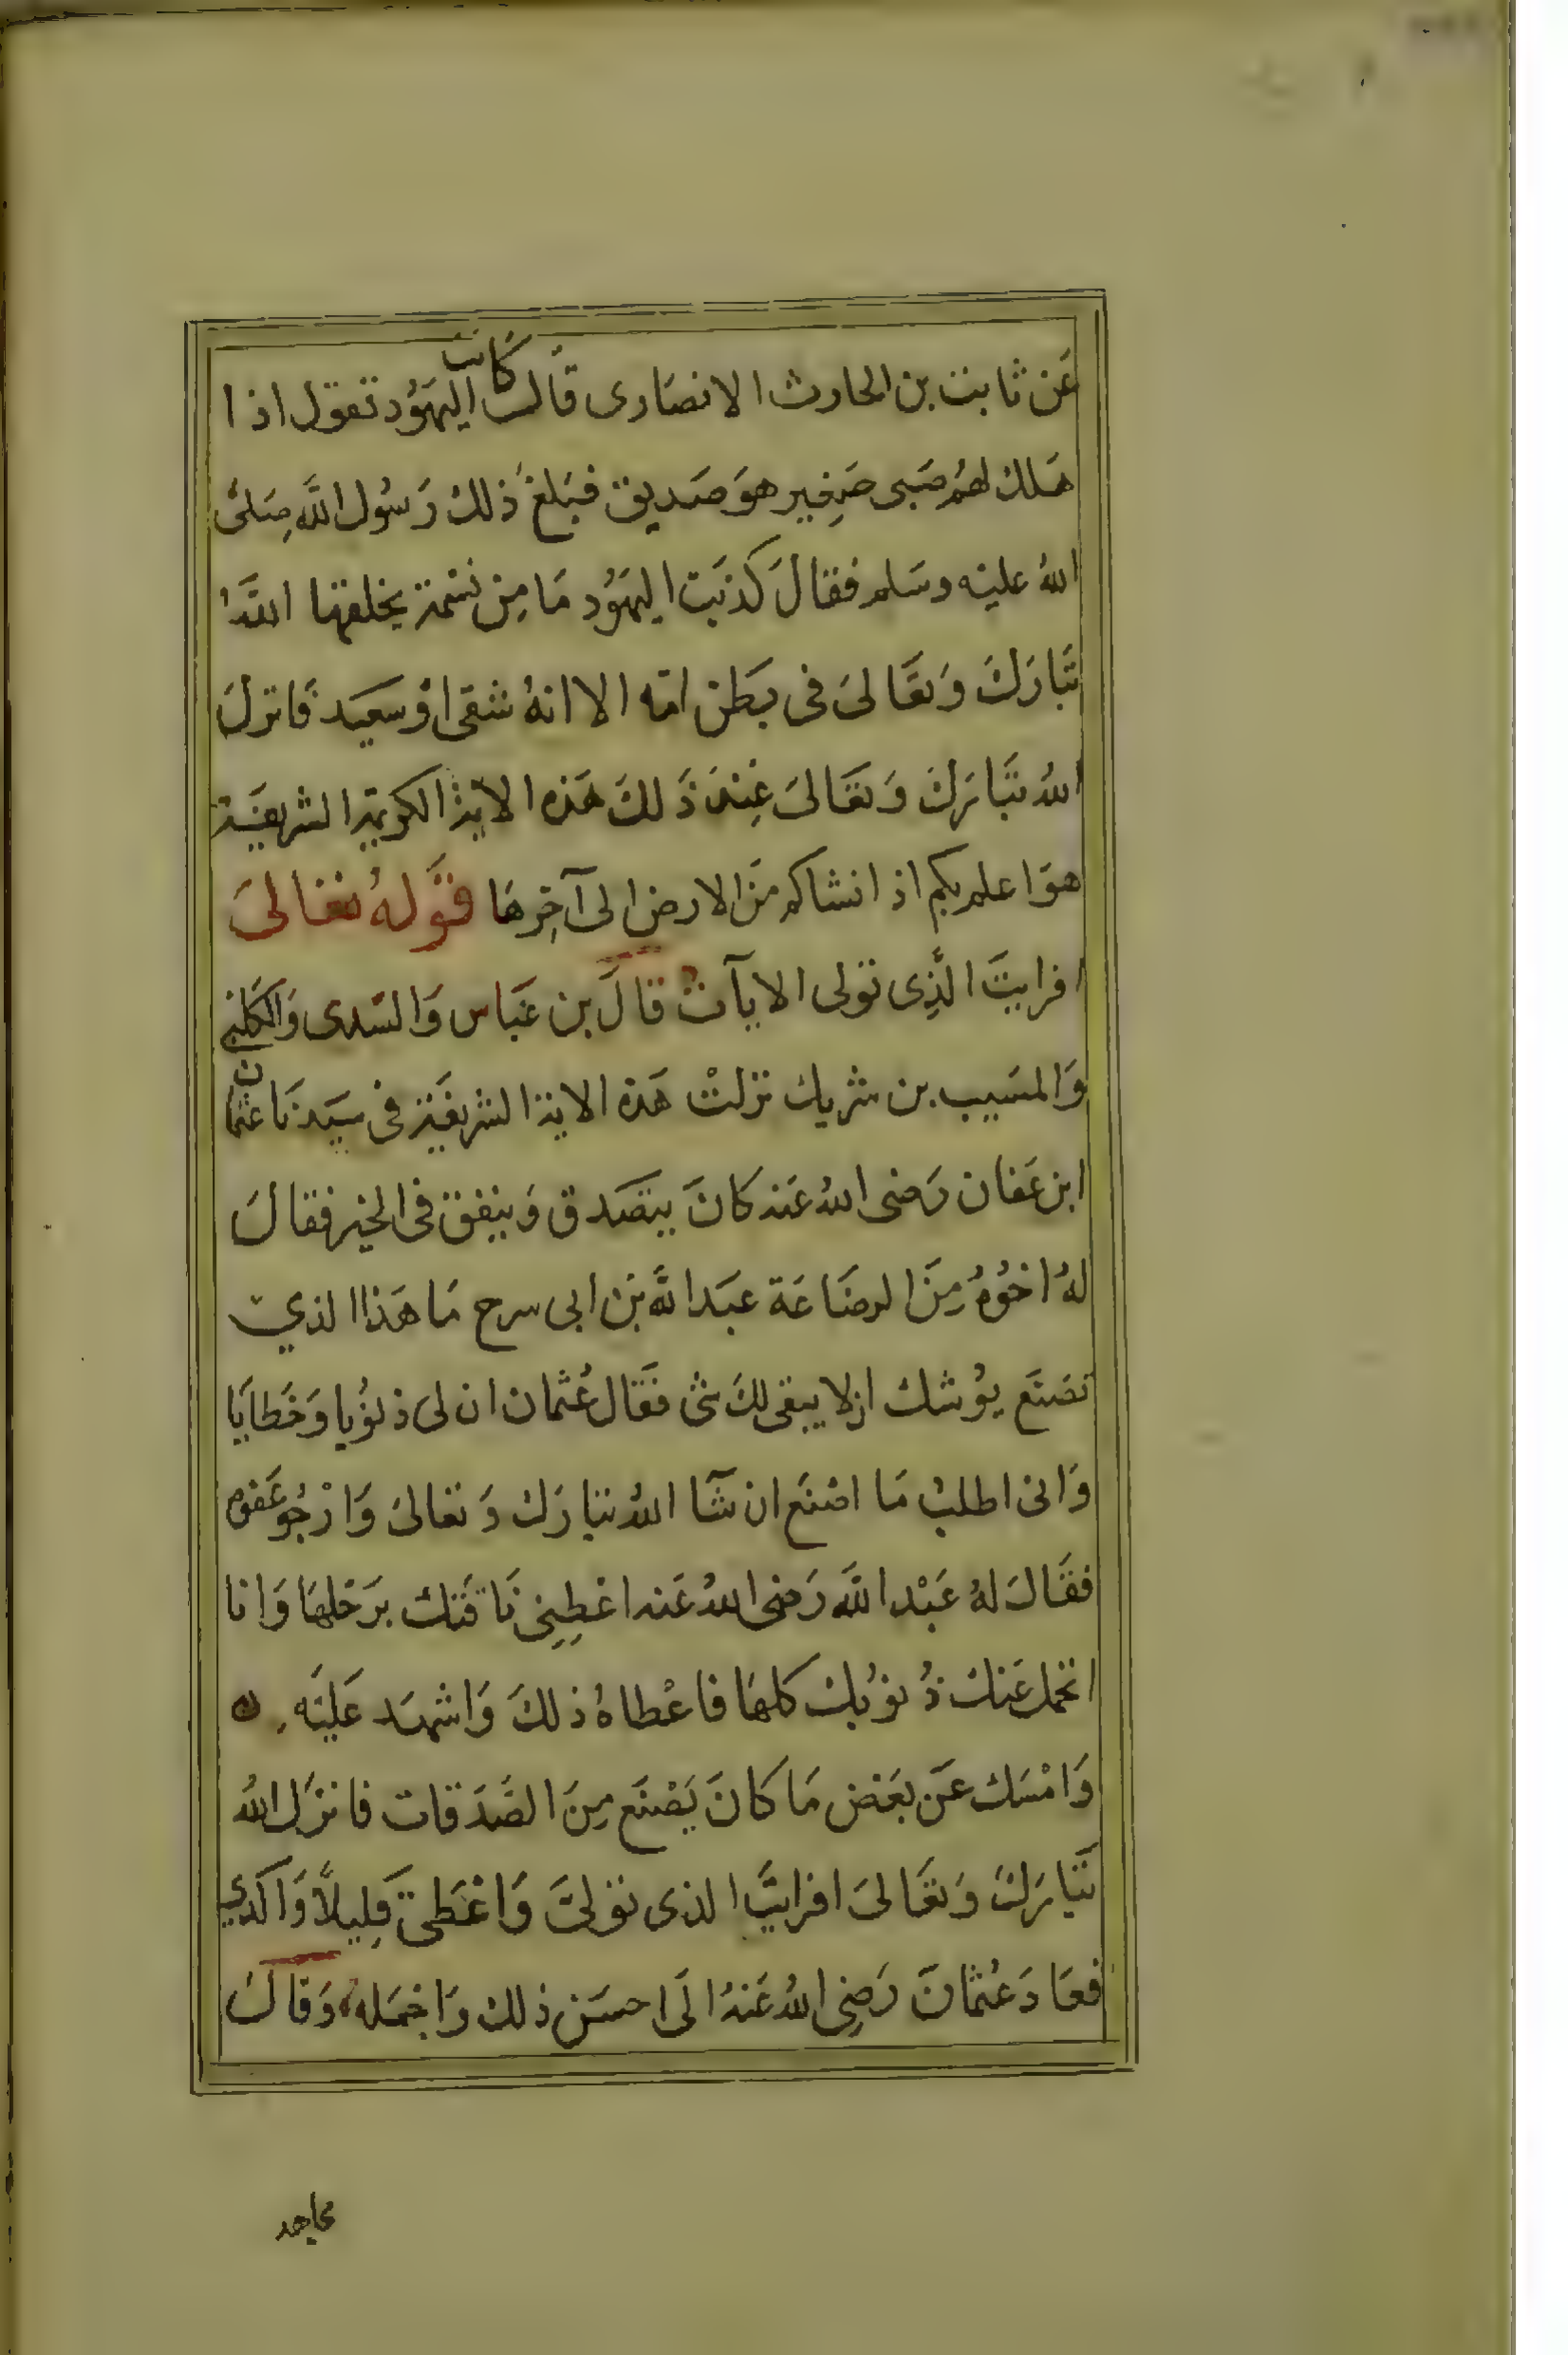 عَن ثابت بن الحارث الانصَارى قَال كانت اليهَوُد تقول اذا
هَلك لهُم صَبى صَغِير هوَ صَديق فبَلغَ ذلك رَسُول اللَّه صَلىَّ
اللهُ عليْه وسَلم فقالَ كذبَت اليهَوُد مَا مِن نسَمة يخلقها اللَّه
تَبَارَكَ وَتعَالىَ فى بَطن امّه الا انهُ شقى اوْ سعيَد فَانزلَ
اللهُ تبَاركَ وَتعَالىَ عِندَ ذَلكَ هَذه الايَة الكريمة الشريفَة
هوَ اعلم بكم اذ انشاكم مَن الارض الى آخِرهَا قوَّلهُ تعَالىَ
افرايتَ الَّذِى تولى الايآت قالَ بن عَبَاس وَالسَّدى وَالكَلبى
وَالمسَيب بن شريك نزلتْ هَذه الاية الشريفَة فى سيَدنَا عثمان
ابن عَفان رَضى اللهُ عَنه كانَ يتصَدق وَينِفق فى الخيْر فقالَ
لهُ اخوُهُ مِنَ الرضَاعَة عبَد اللَّه بَن ابى سرح مَا هَذا الذي
تصَنَع يوُشك ان لا يبقى لكَ شى فقَال عُثمان ان لى ذنوُبا وَخَطايَا
وَانى اطلبُ مَا اصْنَع ان شَآ اللهُ تبارَك وَتعَالىَ وَارْجُو عَفوه
فقَالَ لهُ عَبْد اللَّه رَضى اللهُ عَنه اعْطِينِى نَاقتَك برَحْلهَا وَانا
اتحَمل عَنك ذُنوُبك كلهَا فاعْطاهُ ذلكَ وَاشهَد عَليَه ه
وَامْسَك عَن بعَض مَا كانَ يَصْنَع مِنَ الصَّدَقات فانزَل اللهُ
تبَاركَ وَتعَالىَ افرايتَ الذى توَلىَّ وَاعْطىَ قلِيلاً وَاكَدى
فعَادَ عُثمانَ رَضِى اللهُ عَنهُ الَى احسَن ذلك وَاجْمَله وَقالَ
مجاهد